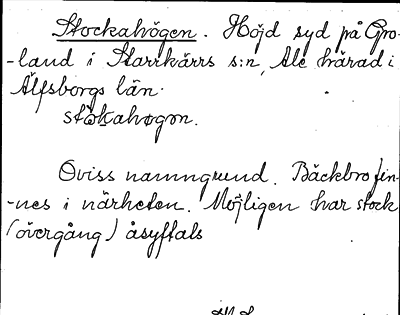 Stockahögen. Höjd syd på Gro-
-land i Starrkärrs s:n, Ale härad i
Älfsborgs län.
stökahøgøn.
Oviss namngrund. Bäckbro fin-
-nes i närheten. Möjligen har stock
(övergång) åsyftats